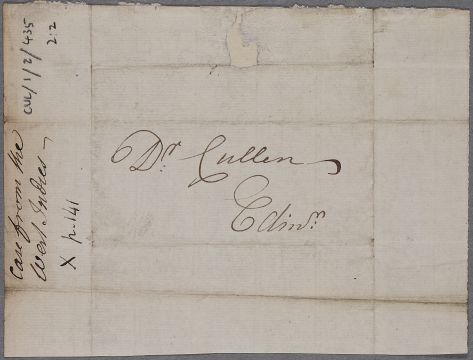 Dr. Cullen
Edinr.
Case from the
West Indies
X p. 141
CUL/1/2/435
2:2